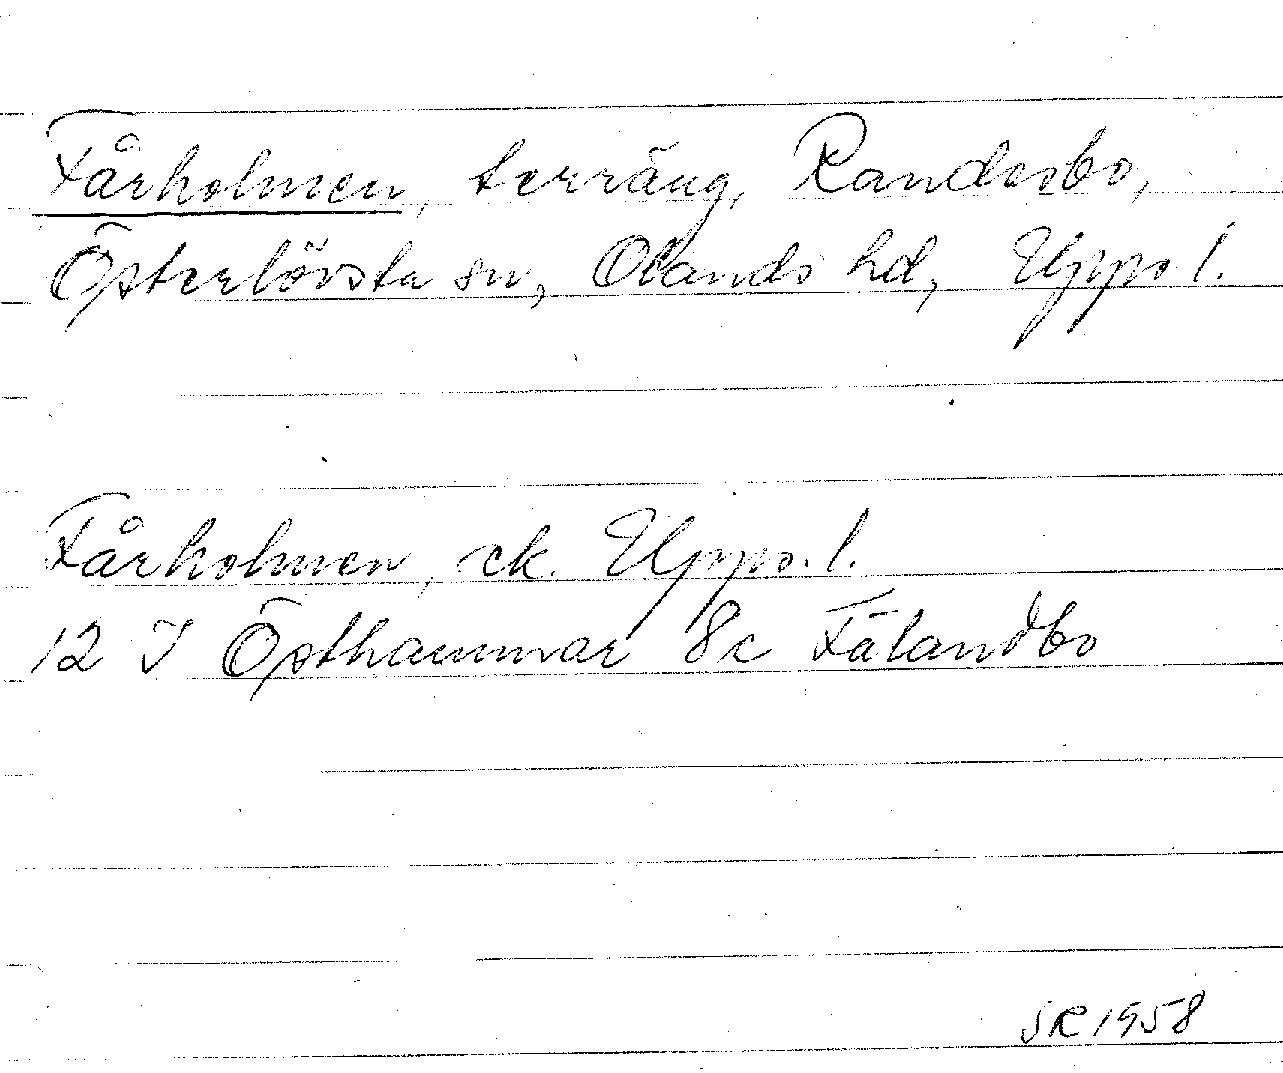 Fårholmen, terräng, Randesbo,
Österlövsta sn, Olands hd, Upps l.
Fårholmen, ek. Upps. l.
12 I Östhammar 8c Fälandbo
SR 1958